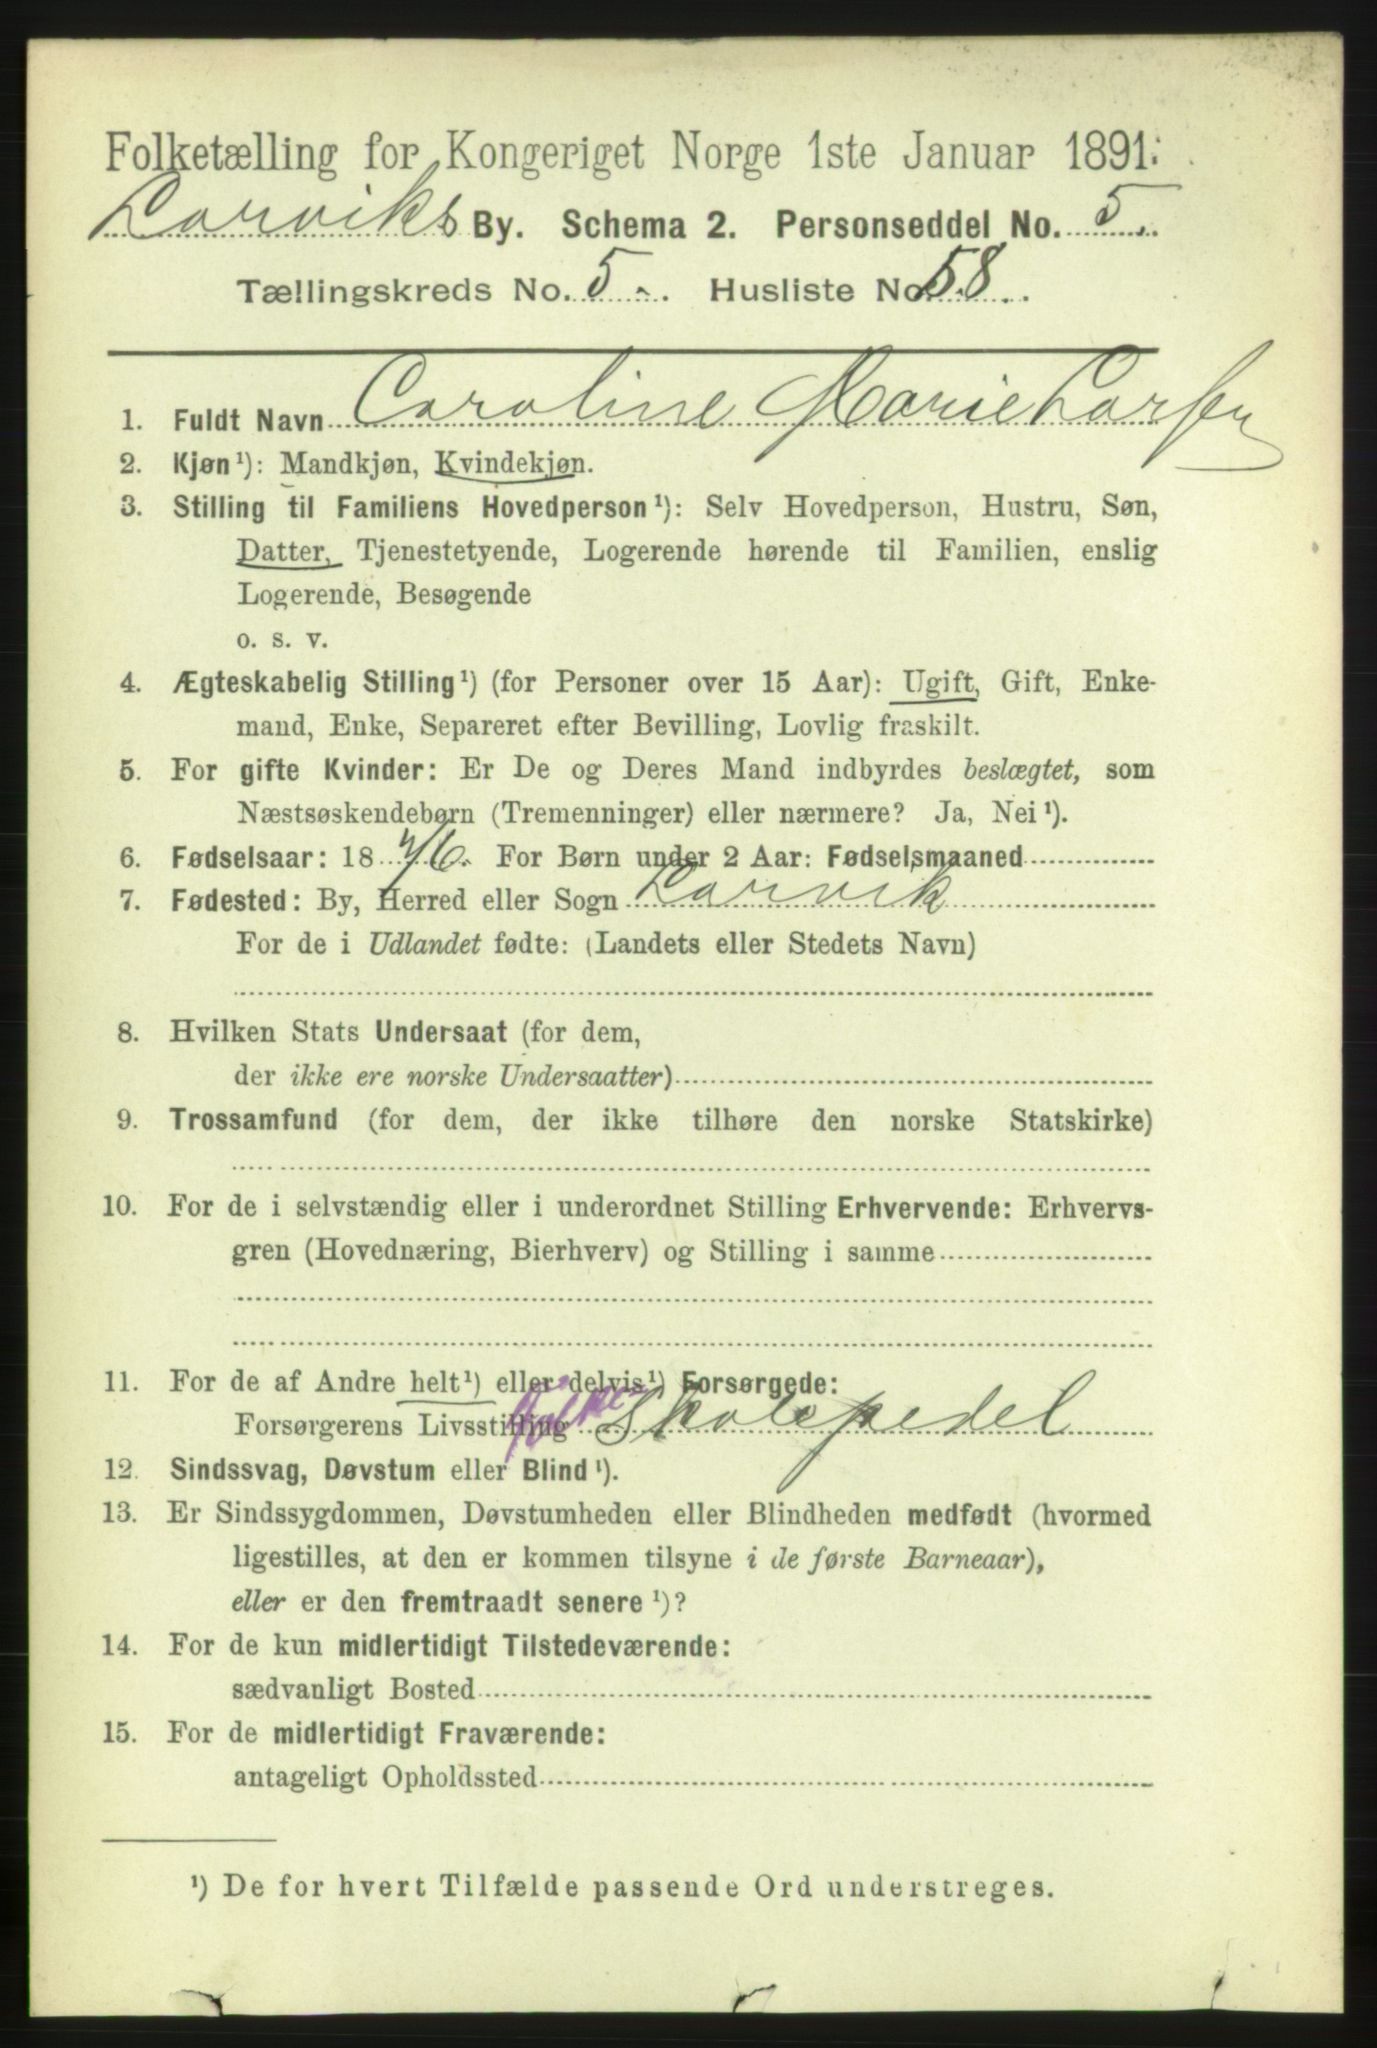 Folketælling for Kongeriget Norge 1ste Januar 1891.
Larviks By. Schema 2. Personseddel No. 5.
Tællingskreds No. 5. Husliste No 58.
1. Fuldt Navn Caroline Marie Larsen
2. Kjøn¹): Mandkjøn, Kvindekjøn.
3. Stilling til Familiens Hovedperson¹): Selv Hovedperson, Hustru, Søn,
Datter, Tjenestetyende, Logerende hørende til Familien, enslig
Logerende, Besøgende
o. s. v.
4. Ægteskabelig Stilling¹) (for Personer over 15 Aar): Ugift, Gift, Enke-
mand, Enke, Separeret efter Bevilling, Lovlig fraskilt.
5. For gifte Kvinder: Er De og Deres Mand indbyrdes beslægtet, som
Næstsøskendebørn (Tremenninger) eller nærmere? Ja, Nei¹).
6. Fødselsaar: 1876. For Børn under 2 Aar: Fødselsmaaned
7. Fødested: By, Herred eller Sogn Larvik
For de i Udlandet fødte: (Landets eller Stedets Navn)
8. Hvilken Stats Undersaat (for dem,
der ikke ere norske Undersaatter)
9. Trossamfund (for dem, der ikke tilhøre den norske Statskirke)
10. For de i selvstændig eller i underordnet Stilling Erhvervende: Erhvervs-
gren (Hovednæring, Bierhverv) og Stilling i samme
11. For de af Andre helt¹) eller delvis¹) Forsørgede:
Forsørgerens Livsstilling Folke Skolepedel
12. Sindssvag, Døvstum eller Blind¹).
13. Er Sindssygdommen, Døvstumheden eller Blindheden medfødt (hvormed
ligestilles, at den er kommen tilsyne i de første Barneaar),
eller er den fremtraadt senere¹)?
14. For de kun midlertidigt Tilstedeværende:
sædvanligt Bosted
15. For de midlertidigt Fraværende:
antageligt Opholdssted
¹) De for hvert Tilfælde passende Ord understreges.